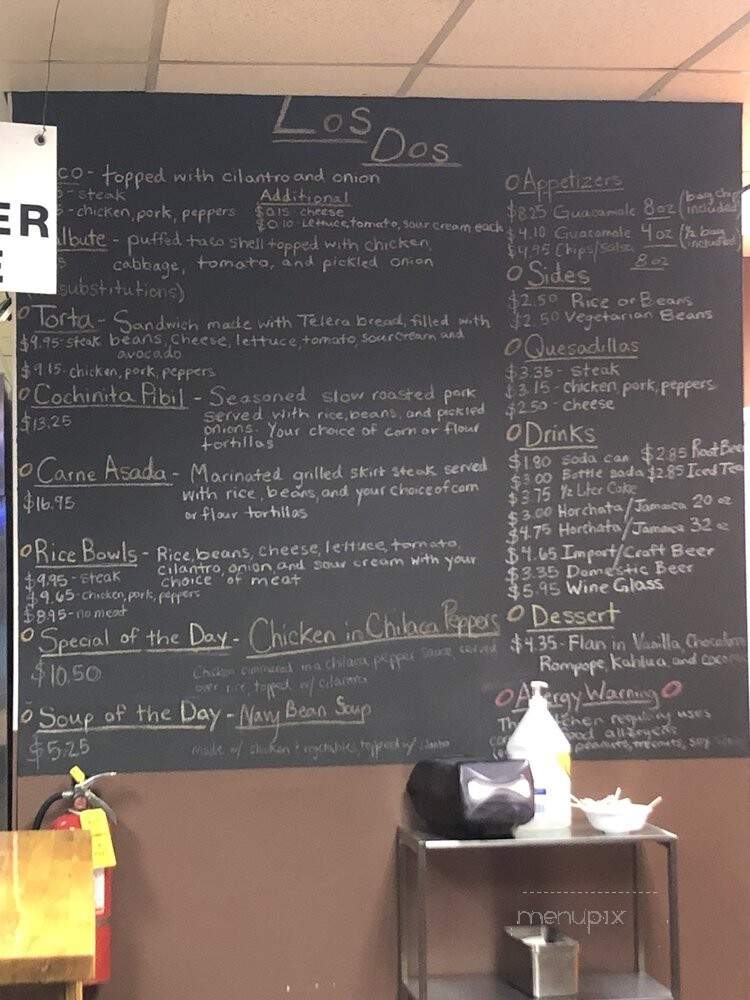 Los
Dos
ER
co - topped with cilantro and onion
- steak
- chicken, pork, peppers
Additional
$0.15 cheese
$0.10 Lettuce, tomato, sour cream each
lbute - puffed taco shell topped with chicken,
cabbage, tomato, and pickled onion
substitutions)
Torta - Sandwich made with Telera bread, filled with
$9.95 - steak beans, cheese, lettuce, tomato, sour cream and
avocado
$9.15 - chicken, pork, peppers
Cochinita Pibil - Seasoned slow roasted pork
$13.25 served with rice, beans, and pickled
onions. Your choice of corn or flour
tortillas
Carne Asada - Marinated grilled skirt steak served
$16.95 with rice, beans, and your choice of corn
or flour tortillas
Rice Bowls - Rice, beans, cheese, lettuce, tomato,
cilantro, onion and sour cream with your
$9.95 - steak choice of meat
$9.65 - chicken, pork, peppers
$8.95 - no meat
Special of the Day - Chicken in Chilaca Peppers
$10.50 Chicken simmered in a chilaca pepper sauce, served
over rice, topped w/ cilantro
Soup of the Day - Navy Bean Soup
$5.25 made w/ chicken + vegetables, topped w/
Appetizers
$8.25 Guacamole 8 oz (bag chips
included)
$4.10 Guacamole 4 oz (½ bag
included)
$4.95 Chips/Salsa
8 oz
Sides
$2.50 Rice or Beans
$2.50 Vegetarian Beans
Quesadillas
$3.35 - steak
$3.15 - chicken, pork, peppers
$2.50 - cheese
Drinks
$1.80 soda can $2.85 Root Beer
$3.00 Bottle soda $2.85 Iced Tea
$3.75 ½ Liter Coke
$3.00 Horchata/Jamaica 20 oz
$4.75 Horchata/Jamaica 32 oz
$4.65 Import/Craft Beer
$3.35 Domestic Beer
$5.95 Wine Glass
Dessert
$4.35 - Flan in Vanilla, Chocolate
Rompope, Kahlua and coconut
Allergy Warning
kitchen regularly uses
food allergens
peanuts, treenuts, soy
menupix